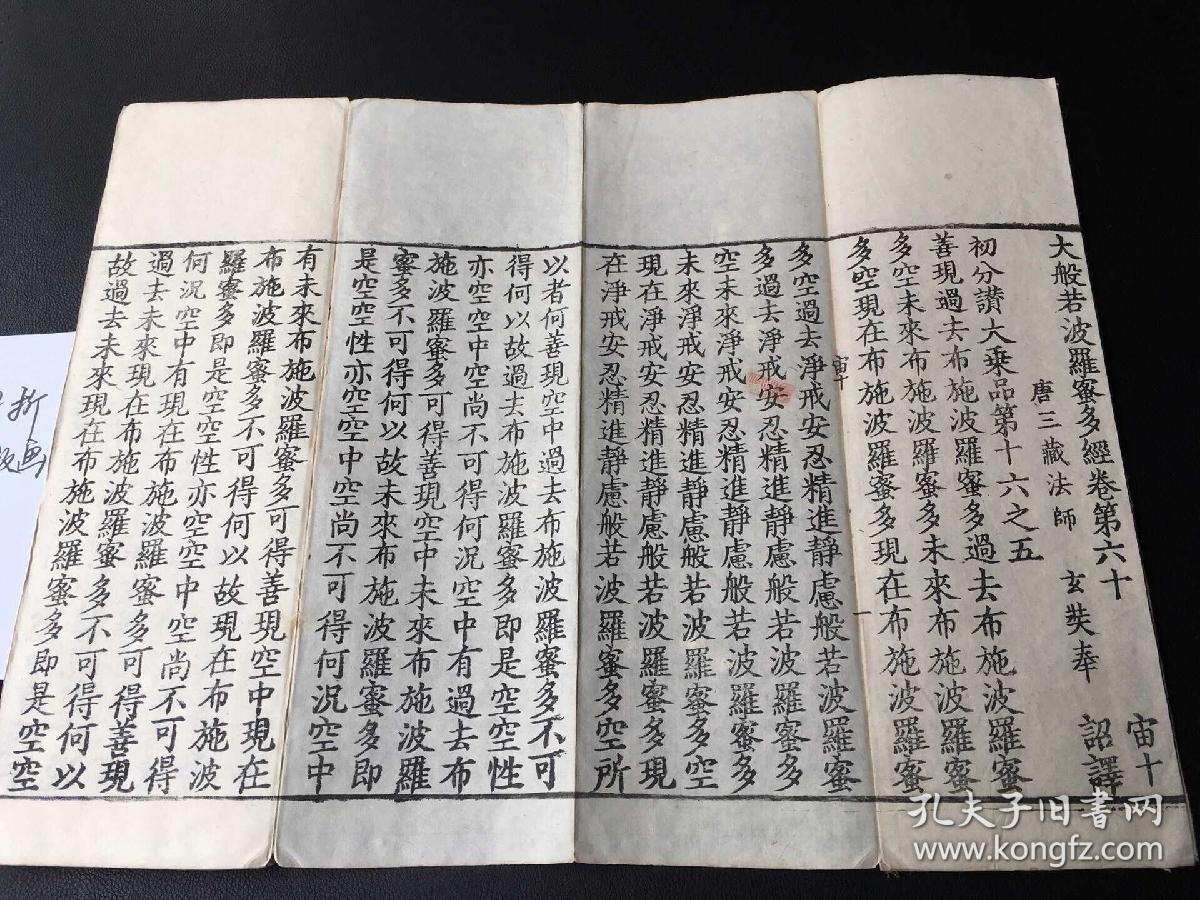 大般若波羅蜜多經卷第六十 宙十
唐三藏法師 玄奘奉 詔譯
初分讚大乘品第十六之五
善現過去布施波羅蜜多過去布施波羅蜜
多空未來布施波羅蜜多未來布施波羅蜜
多空現在布施波羅蜜多現在布施波羅蜜
宙十
多空過去淨戒安忍精進靜慮般若波羅蜜
多過去淨戒安忍精進靜慮般若波羅蜜多
空未來淨戒安忍精進靜慮般若波羅蜜多
未來淨戒安忍精進靜慮般若波羅蜜多空
現在淨戒安忍精進靜慮般若波羅蜜多現
在淨戒安忍精進靜慮般若波羅蜜多空所
以者何善現空中過去布施波羅蜜多不可
得何以故過去布施波羅蜜多即是空空性
亦空空中空尚不可得何況空中有過去布
施波羅蜜多可得善現空中未來布施波羅
蜜多不可得何以故未來布施波羅蜜多即
是空空性亦空空中空尚不可得何況空中
有未來布施波羅蜜多可得善現空中現在
布施波羅蜜多不可得何以故現在布施波
羅蜜多即是空空性亦空空中空尚不可得
何況空中有現在布施波羅蜜多可得善現
過去未來現在布施波羅蜜多不可得何以
故過去未來現在布施波羅蜜多即是空空
折
版画
孔夫子旧书网
www.kongfz.com